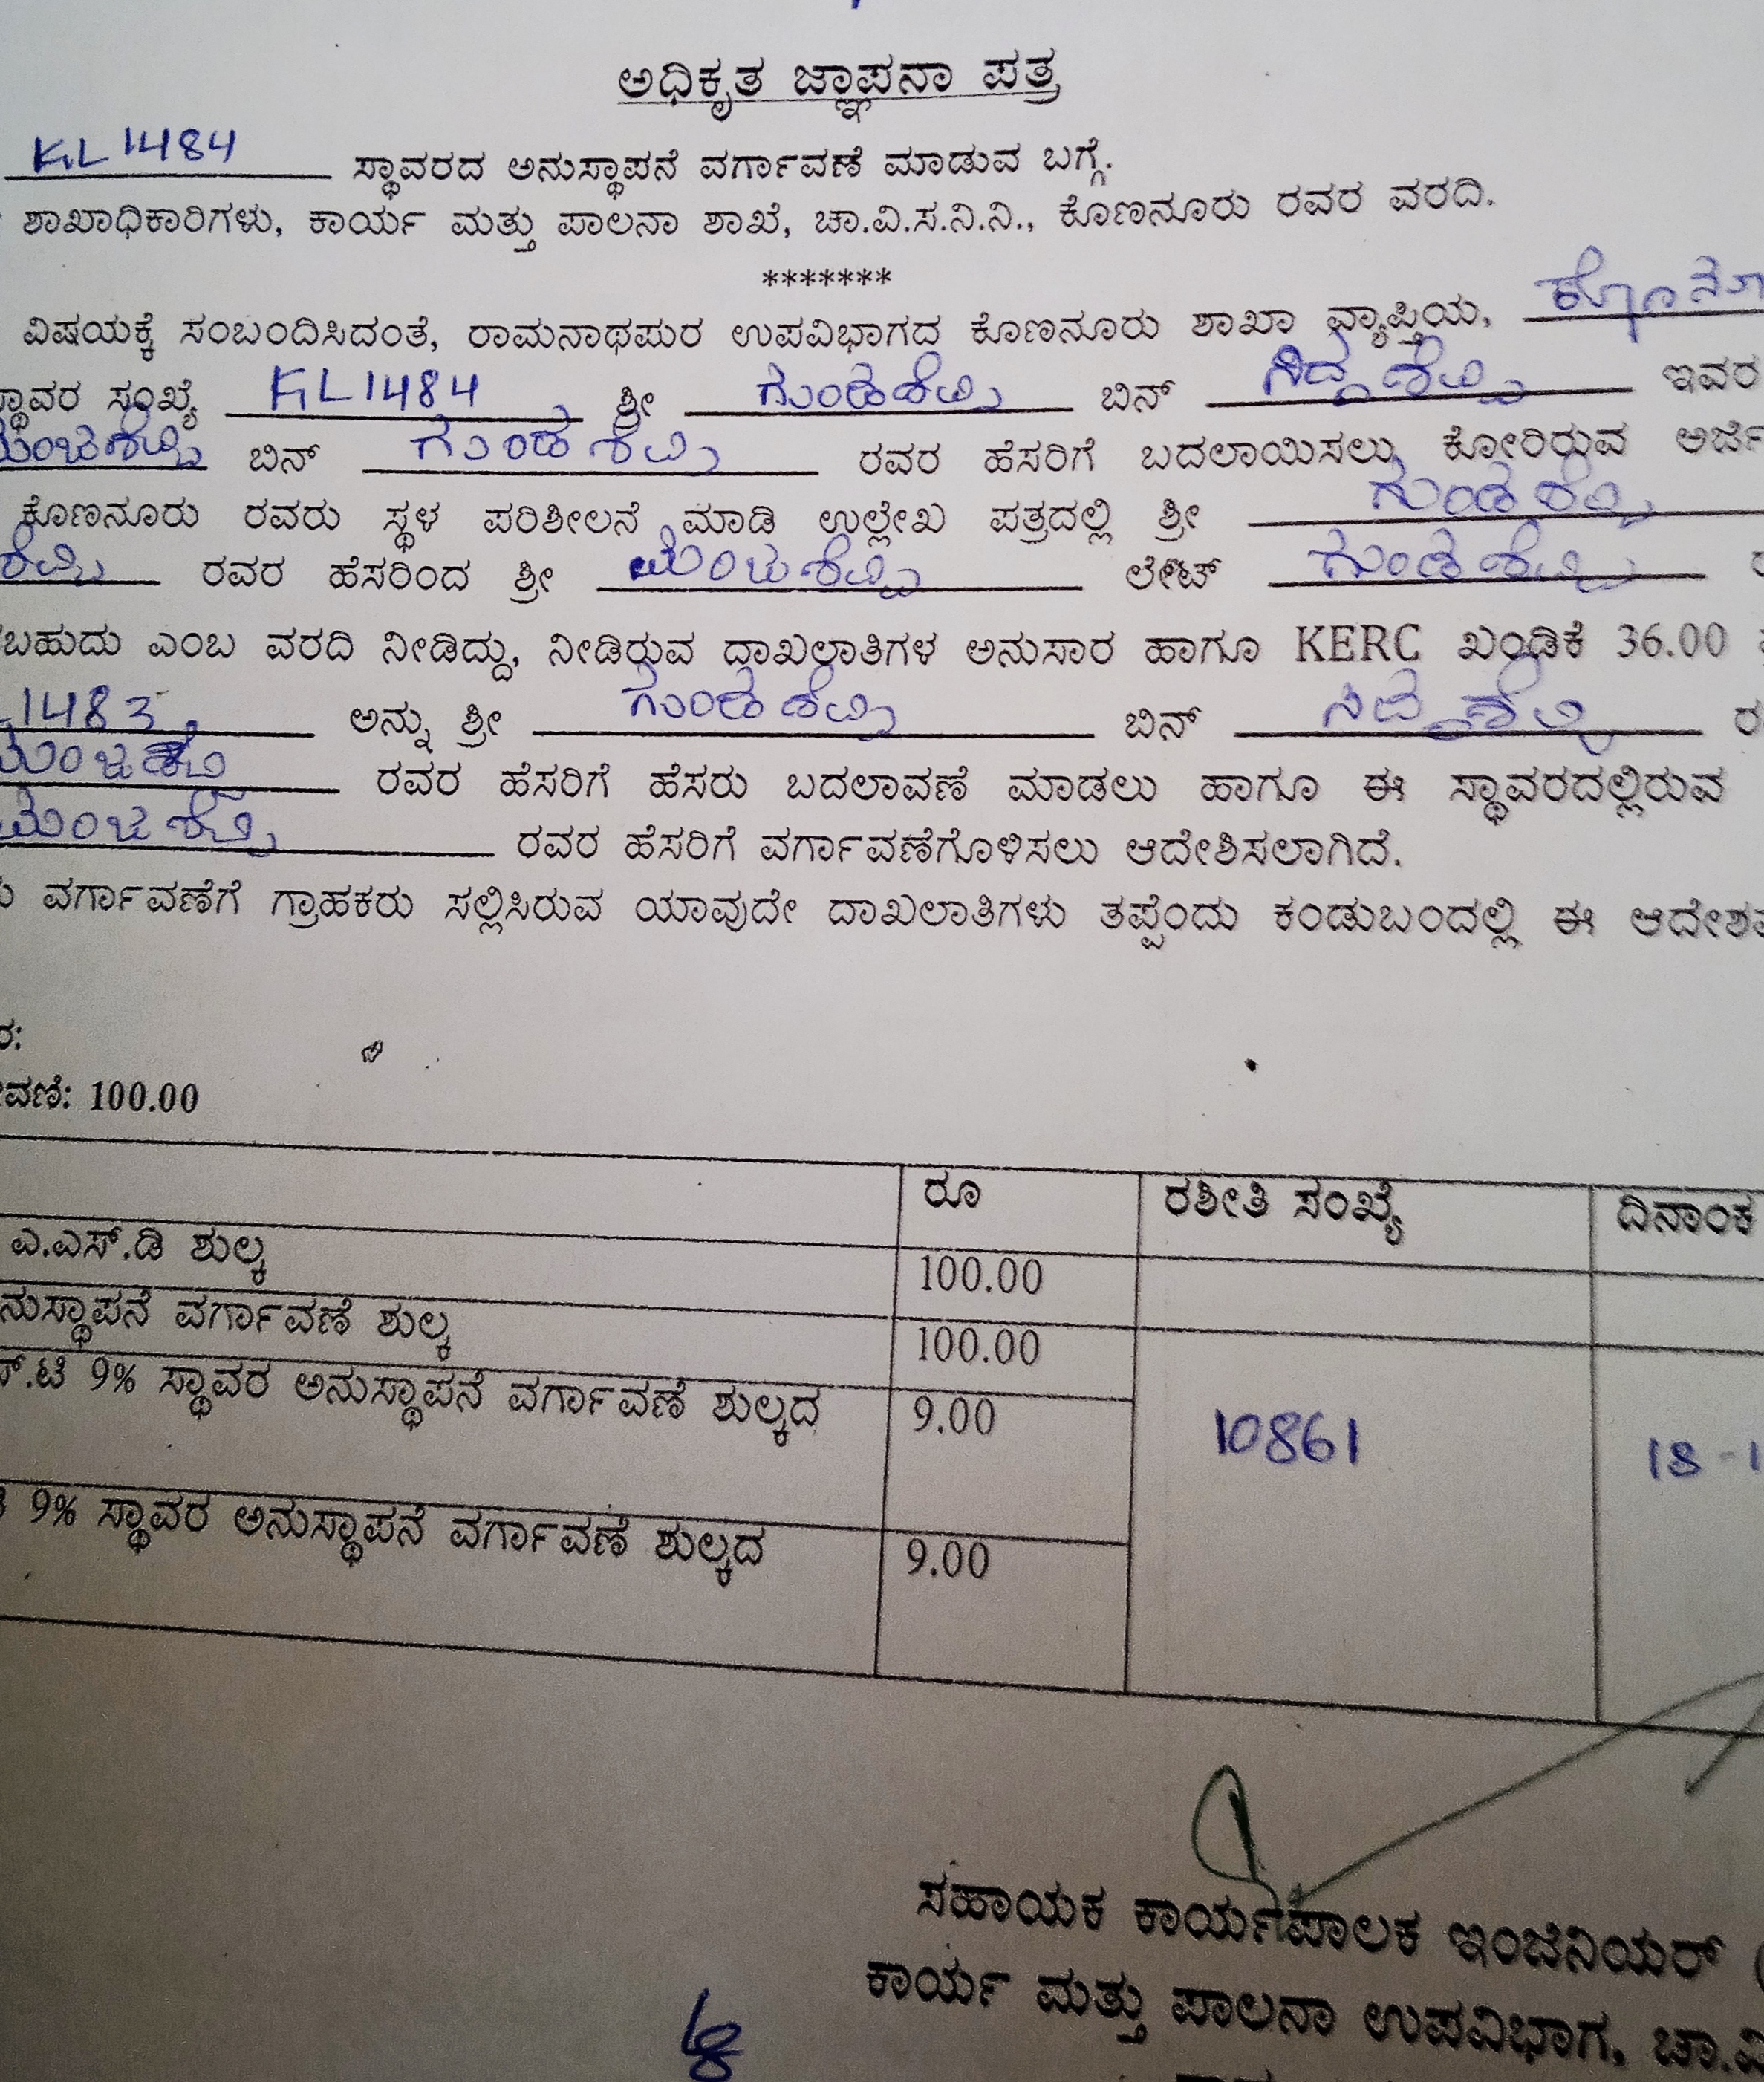 ಅಧಿಕೃತ ಜ್ಞಾಪನಾ ಪತ್ರ
KL 1484 ಸ್ಥಾವರದ ಅನುಸ್ಥಾಪನೆ ವರ್ಗಾವಣೆ ಮಾಡುವ ಬಗ್ಗೆ.
ಶಾಖಾಧಿಕಾರಿಗಳು, ಕಾರ್ಯ ಮತ್ತು ಪಾಲನಾ ಶಾಖೆ, ಚಾ.ವಿ.ಸ.ನಿ.ನಿ., ಕೊಣನೂರು ರವರ ವರದಿ.
*******
ವಿಷಯಕ್ಕೆ ಸಂಬಂದಿಸಿದಂತೆ, ರಾಮನಾಥಪುರ ಉಪವಿಭಾಗದ ಕೊಣನೂರು ಶಾಖಾ ವ್ಯಾಪ್ತಿಯ,
ಸ್ಥಾವರ ಸಂಖ್ಯೆ KL1484 ಶ್ರೀ ಗುಂಡಶೆಟ್ಟಿ ಬಿನ್ ಸಿದ್ದಶೆಟ್ಟಿ ಇವರ
ಮಂಜಶೆಟ್ಟಿ ಬಿನ್ ಗುಂಡಶೆಟ್ಟಿ ರವರ ಹೆಸರಿಗೆ ಬದಲಾಯಿಸಲು ಕೋರಿರುವ ಅರ್ಜಿ
ಕೊಣನೂರು ರವರು ಸ್ಥಳ ಪರಿಶೀಲನೆ ಮಾಡಿ ಉಲ್ಲೇಖ ಪತ್ರದಲ್ಲಿ ಶ್ರೀ ಗುಂಡಶೆಟ್ಟಿ
ಶೆಟ್ಟಿ ರವರ ಹೆಸರಿಂದ ಶ್ರೀ ಮಂಜಶೆಟ್ಟಿ ಲೇಟ್ ಗುಂಡಶೆಟ್ಟಿ
ಬಹುದು ಎಂಬ ವರದಿ ನೀಡಿದ್ದು, ನೀಡಿರುವ ದಾಖಲಾತಿಗಳ ಅನುಸಾರ ಹಾಗೂ KERC ಖಂಡಿಕೆ 36.00
1483 ಅನ್ನು ಶ್ರೀ ಗುಂಡಶೆಟ್ಟಿ ಬಿನ್ ಸಿದ್ದಶೆಟ್ಟಿ ರ
ಮಂಜಶೆಟ್ಟಿ ರವರ ಹೆಸರಿಗೆ ಹೆಸರು ಬದಲಾವಣೆ ಮಾಡಲು ಹಾಗೂ ಈ ಸ್ಥಾವರದಲ್ಲಿರುವ
ಮಂಜಶೆಟ್ಟಿ ರವರ ಹೆಸರಿಗೆ ವರ್ಗಾವಣೆಗೊಳಿಸಲು ಆದೇಶಿಸಲಾಗಿದೆ.
ವರ್ಗಾವಣೆಗೆ ಗ್ರಾಹಕರು ಸಲ್ಲಿಸಿರುವ ಯಾವುದೇ ದಾಖಲಾತಿಗಳು ತಪ್ಪೆಂದು ಕಂಡುಬಂದಲ್ಲಿ ಈ ಆದೇಶ
ರ:
ವಣೆ: 100.00
ರೂ ರಶೀತಿ ಸಂಖ್ಯೆ ದಿನಾಂಕ
ಎ.ಎಸ್.ಡಿ ಶುಲ್ಕ 100.00
ನುಸ್ಥಾಪನೆ ವರ್ಗಾವಣೆ ಶುಲ್ಕ 100.00
ಸ್.ಟಿ 9% ಸ್ಥಾವರ ಅನುಸ್ಥಾಪನೆ ವರ್ಗಾವಣೆ ಶುಲ್ಕದ 9.00 10861 18-1
9% ಸ್ಥಾವರ ಅನುಸ್ಥಾಪನೆ ವರ್ಗಾವಣೆ ಶುಲ್ಕದ 9.00
ಸಹಾಯಕ ಕಾರ್ಯಪಾಲಕ ಇಂಜಿನಿಯರ್ (
ಕಾರ್ಯ ಮತ್ತು ಪಾಲನಾ ಉಪವಿಭಾಗ, ಚಾ.ವಿ